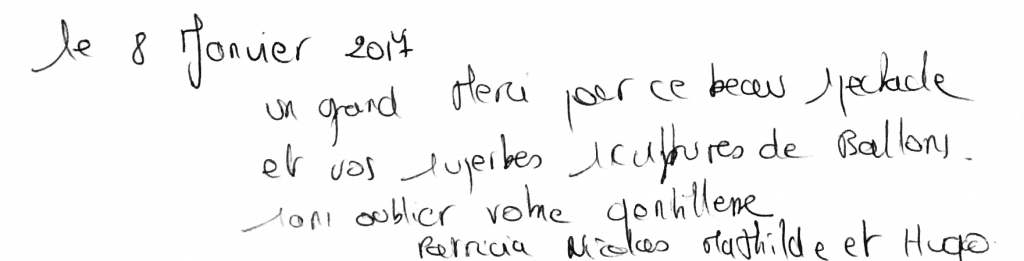 le 8 Janvier 2017
un grand Merci pour ce beau spectacle
et vos superbes sculptures de Ballons.
sans oublier votre gentillesse
Patricia Nicolas Mathilde et Hugo